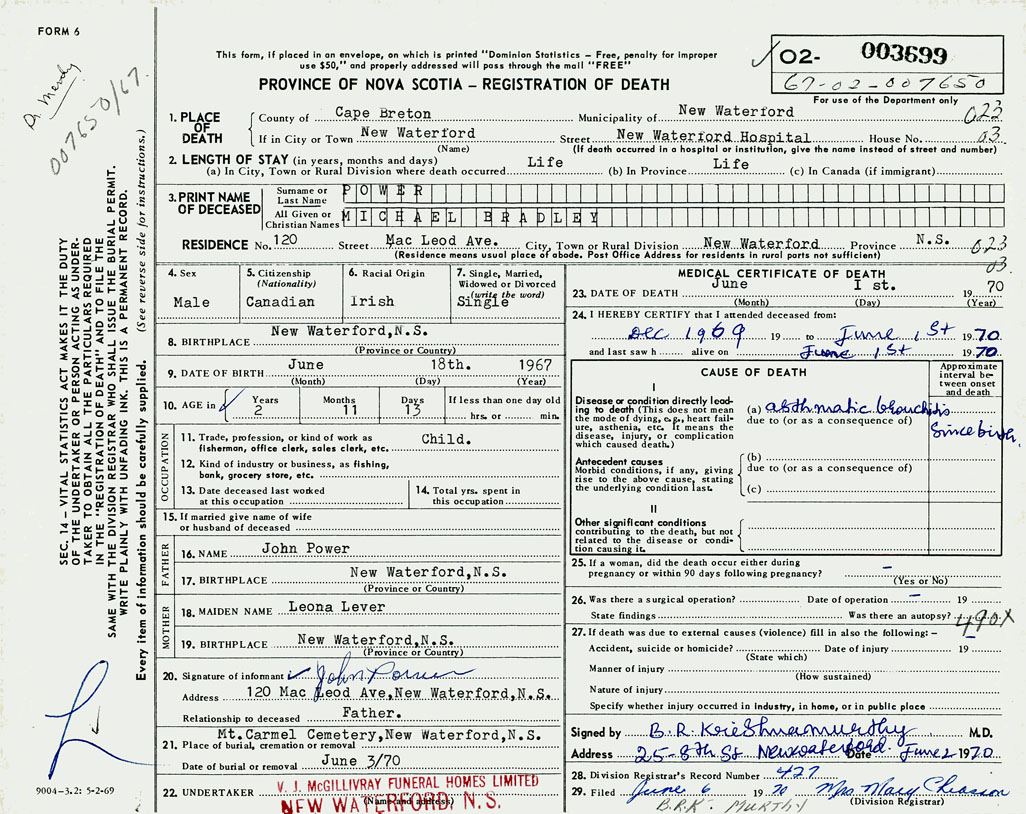 FORM 6
This form, if placed in an envelope, on which is printed "Dominion Statistics – Free, penalty for improper
use $50," and properly addressed will pass through the mail "FREE"
PROVINCE OF NOVA SCOTIA – REGISTRATION OF DEATH
02- 003699
67-02-007650
For use of the Department only
Dr. Mendy
007650/67.
SEC. 14 – VITAL STATISTICS ACT MAKES IT THE DUTY
OF THE UNDERTAKER OR PERSON ACTING AS UNDER-
TAKER TO OBTAIN ALL THE PARTICULARS REQUIRED
IN THE "REGISTRATION OF DEATH" AND TO FILE THE
SAME WITH THE DIVISION REGISTRAR WHO SHALL ISSUE THE BURIAL PERMIT.
WRITE PLAINLY WITH UNFADING INK. THIS IS A PERMANENT RECORD.
Every item of information should be carefully supplied. (See reverse side for instructions.)
1. PLACE OF DEATH
County of Cape Breton Municipality of New Waterford 023
If in City or Town New Waterford Street New Waterford Hospital House No. 03.
(Name) (If death occurred in a hospital or institution, give the name instead of street and number)
2. LENGTH OF STAY (in years, months and days)
(a) In City, Town or Rural Division where death occurred Life (b) In Province Life (c) In Canada (if immigrant)
3. PRINT NAME OF DECEASED
Surname or Last Name POWER
All Given or Christian Names MICHAEL BRADLEY
RESIDENCE No. 120 Street Mac Leod Ave. City, Town or Rural Division New Waterford Province N.S. 023
(Residence means usual place of abode. Post Office Address for residents in rural parts not sufficient) 03.
4. Sex
Male
5. Citizenship
(Nationality)
Canadian
6. Racial Origin
Irish
7. Single, Married,
Widowed or Divorced
(write the word)
Single
8. BIRTHPLACE New Waterford,N.S.
(Province or Country)
9. DATE OF BIRTH June 18th. 1967
(Month) (Day) (Year)
10. AGE in Years 2 Months 11 Days 13 If less than one day old
hrs. or min.
OCCUPATION
11. Trade, profession, or kind of work as
fisherman, office clerk, sales clerk, etc. Child.
12. Kind of industry or business, as fishing,
bank, grocery store, etc.
13. Date deceased last worked
at this occupation
14. Total yrs. spent in
this occupation
15. If married give name of wife
or husband of deceased
FATHER
16. NAME John Power
17. BIRTHPLACE New Waterford,N.S.
(Province or Country)
MOTHER
18. MAIDEN NAME Leona Lever
19. BIRTHPLACE New Waterford,N.S.
(Province or Country)
20. Signature of informant John Power
Address 120 Mac Leod Ave,New Waterford,N.S.
Relationship to deceased Father.
21. Place of burial, cremation or removal Mt.Carmel Cemetery,New Waterford,N.S.
Date of burial or removal June 3/70
22. UNDERTAKER V. J. McGILLIVRAY FUNERAL HOMES LIMITED
(Name and address) NEW WATERFORD, N. S.
9004-3.2: 5-2-69
MEDICAL CERTIFICATE OF DEATH
23. DATE OF DEATH June I st. 19 70
(Month) (Day) (Year)
24. I HEREBY CERTIFY that I attended deceased from:
Dec 1969 19 to June 1st 1970
and last saw h alive on June 1st 1970
CAUSE OF DEATH
Approximate
interval be-
tween onset
and death
I
Disease or condition directly lead-
ing to death (This does not mean
the mode of dying, e.g., heart fail-
ure, asthenia, etc. It means the
disease, injury, or complication
which caused death.)
(a) asthmatic bronchitis
due to (or as a consequence of)
Since birth.
Antecedent causes
Morbid conditions, if any, giving
rise to the above cause, stating
the underlying condition last.
(b)
due to (or as a consequence of)
(c)
II
Other significant conditions
contributing to the death, but not
related to the disease or condi-
tion causing it.
25. If a woman, did the death occur either during
pregnancy or within 90 days following pregnancy? –
(Yes or No)
26. Was there a surgical operation? Date of operation – 19
State findings Was there an autopsy? –
490X
27. If death was due to external causes (violence) fill in also the following: –
Accident, suicide or homicide? Date of injury 19
(State which)
Manner of injury
(How sustained)
Nature of injury
Specify whether injury occurred in industry, in home, or in public place
Signed by B.R. Krishnamurthy M.D.
Address 25-8th St Newwaterford. Date June 2 1970
28. Division Registrar's Record Number 427
29. Filed June 6 1970 Mrs Mary Chiasson
(Division Registrar)
B.R.K. MURTHY